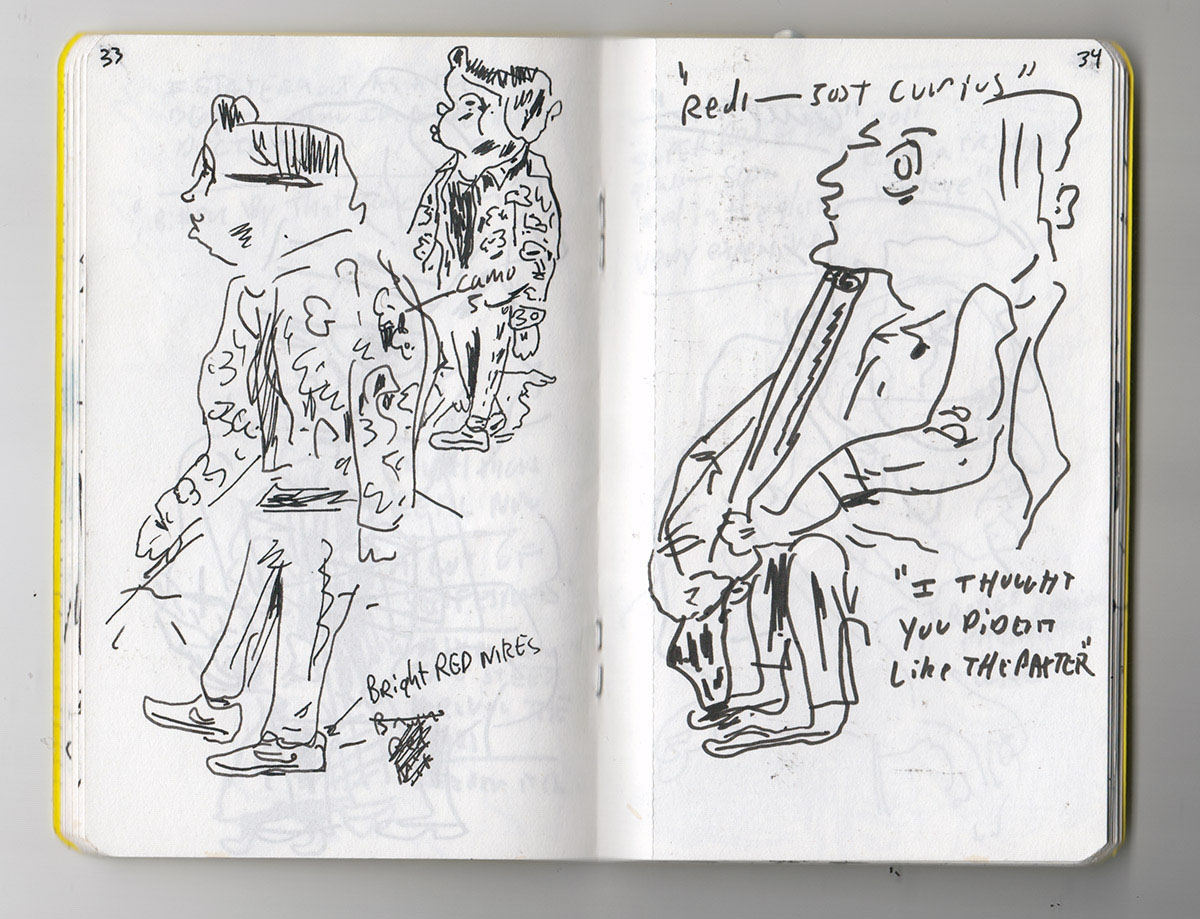 33
camo
Bright RED NIKES
34
"Redi — Just Curius"
"I THOUGHT
YOU DiDENT
Like THE PASTER"